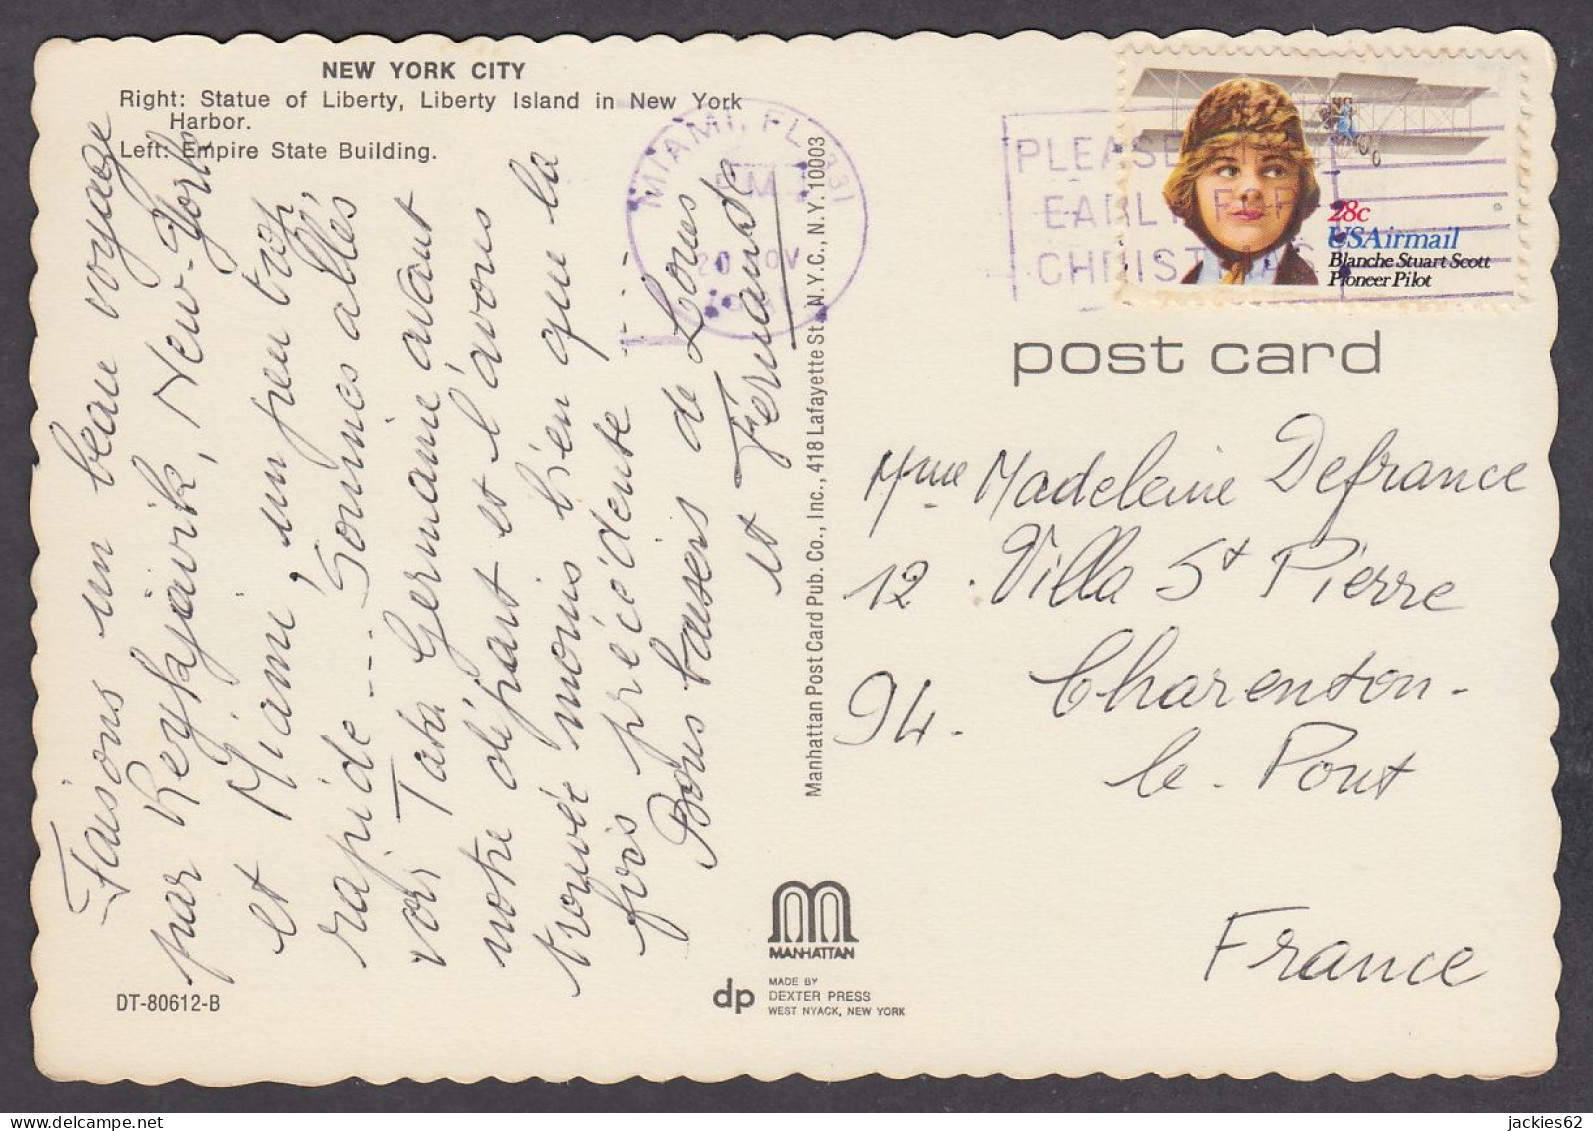 NEW YORK CITY
Right: Statue of Liberty, Liberty Island in New York
Harbor.
Left: Empire State Building.
Faisons un beau voyage
par Reykjavik, New-York,
et Miami, un peu trop
rapide --- Sommes allés
voir Tata Germaine avant
notre départ et l'avons
trouvée moins bien que la
fois précédente ---
Bons baisers de Louis
et Fernande
DT-80612-B
MANHATTAN
dp
MADE BY
DEXTER PRESS
WEST NYACK, NEW YORK
Manhattan Post Card Pub. Co., Inc., 418 Lafayette St., N.Y.C., N.Y. 10003
MIAMI, FL 331
PM
20 NOV
PLEASE
EARLY FOR
CHRISTMAS
28c
USAirmail
Blanche Stuart Scott
Pioneer Pilot
post card
Mme Madeleine Defrance
12 Villa St Pierre
94. Charenton-
le-Pont
France
jackies62